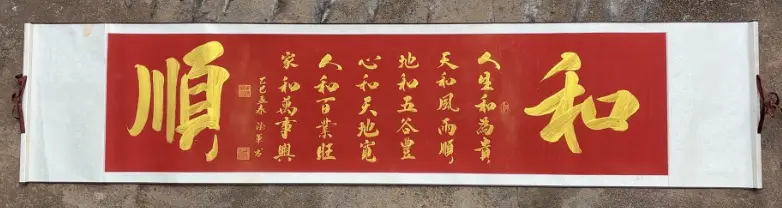 和
人生和為貴
天和風雨順
地和五谷豐
心和天地寬
人和百業旺
家和萬事興
乙巳孟春
順